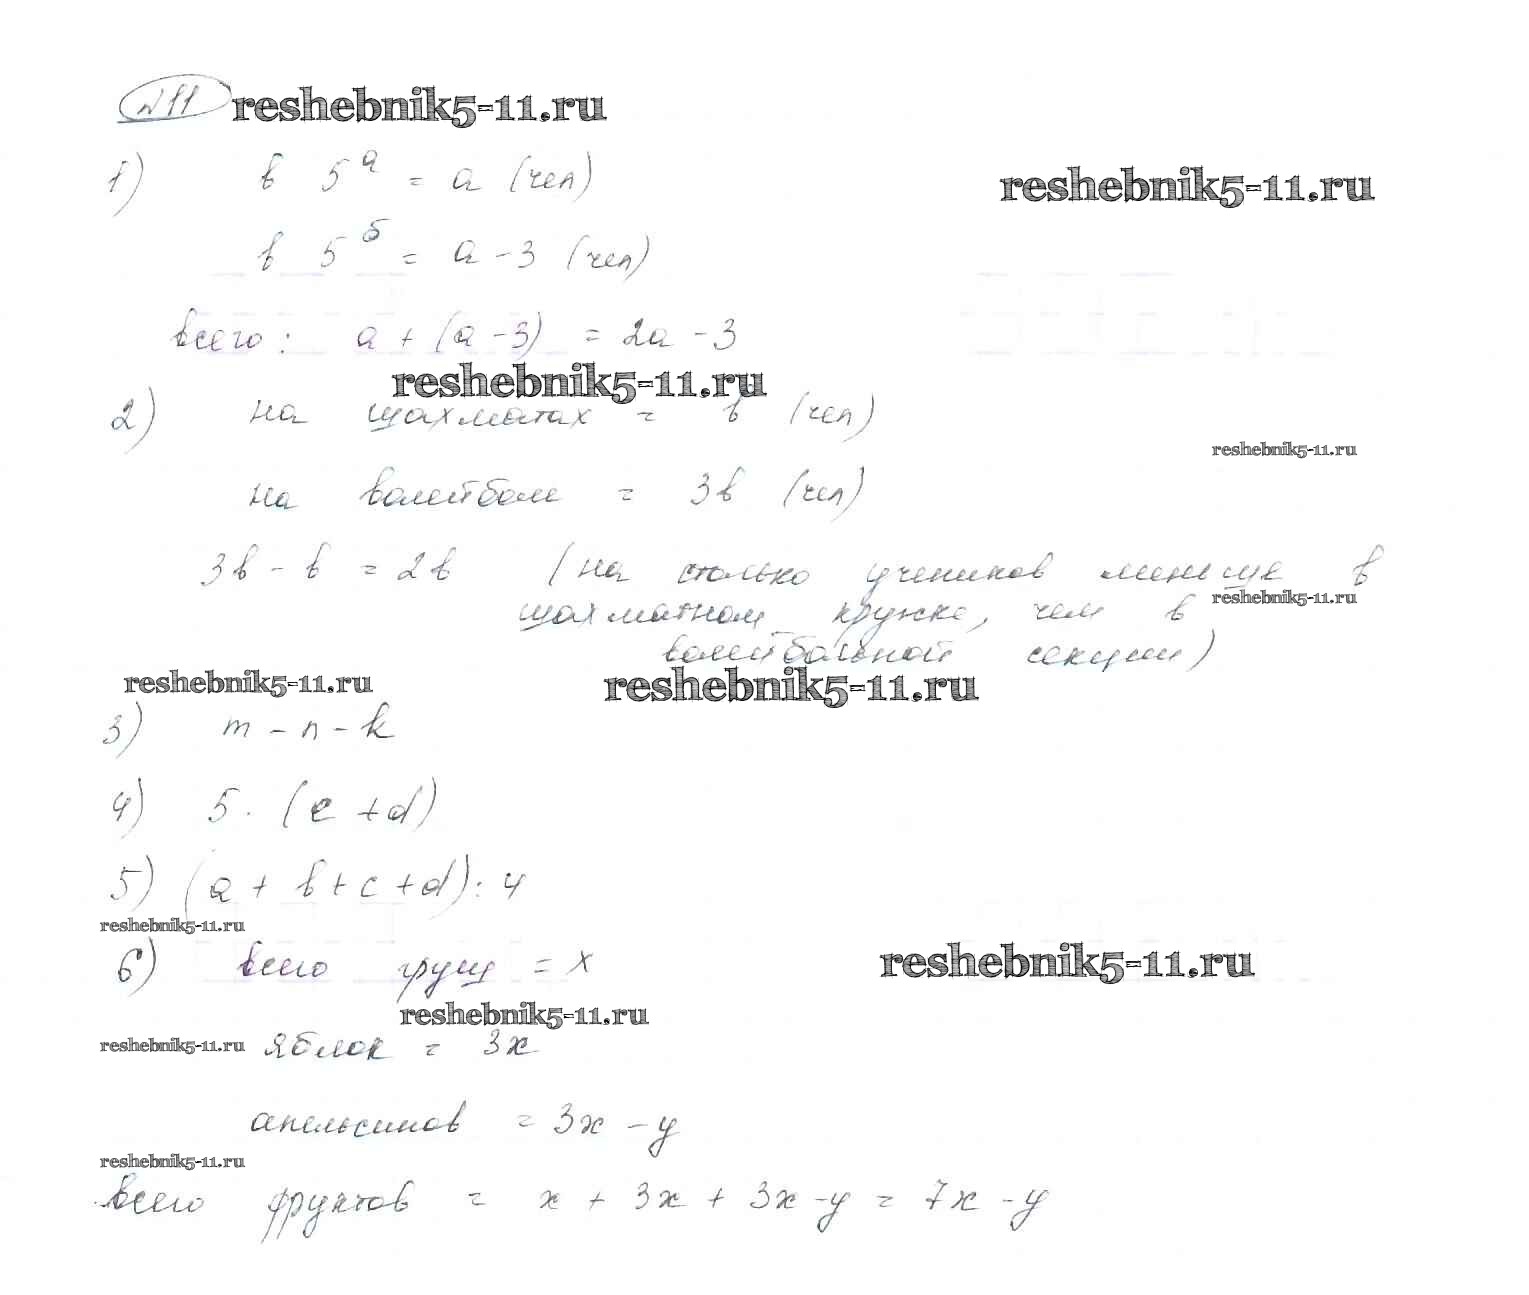 №11 reshebnik5-11.ru
1) в 5ᵃ = a (чел)
reshebnik5-11.ru
в 5ᵇ = a - 3 (чел)
всего: a + (a - 3) = 2a - 3
reshebnik5-11.ru
2) на шахматах = b (чел)
reshebnik5-11.ru
на волейболе = 3b (чел)
3b - b = 2b (на столько учеников меньше в
reshebnik5-11.ru
шахматном кружке, чем в
волейбольной секции)
reshebnik5-11.ru reshebnik5-11.ru
3) m - n - k
4) 5 · (c + d)
5) (a + b + c + d) : 4
reshebnik5-11.ru
6) всего груш = x
reshebnik5-11.ru
reshebnik5-11.ru
reshebnik5-11.ru яблок = 3x
апельсинов = 3x - y
reshebnik5-11.ru
всего фруктов = x + 3x + 3x - y = 7x - y